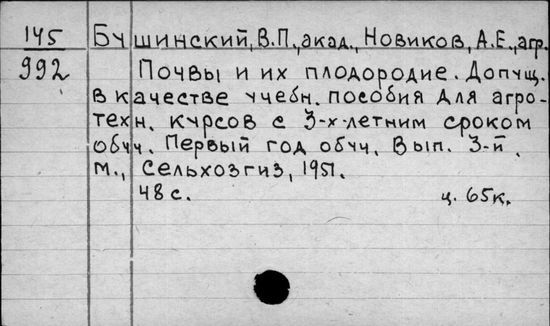 145
992
Бушинский, В.П., акад., Новиков, А.Е., агр.
Почвы и их плодородие. Допущ.
в качестве учебн. пособия для агро-
техн. курсов с 3-х-летним сроком
обуч. Первый год обуч. Вып. 3-й.
М., Сельхозгиз, 1951.
48 с. ц. 65к.